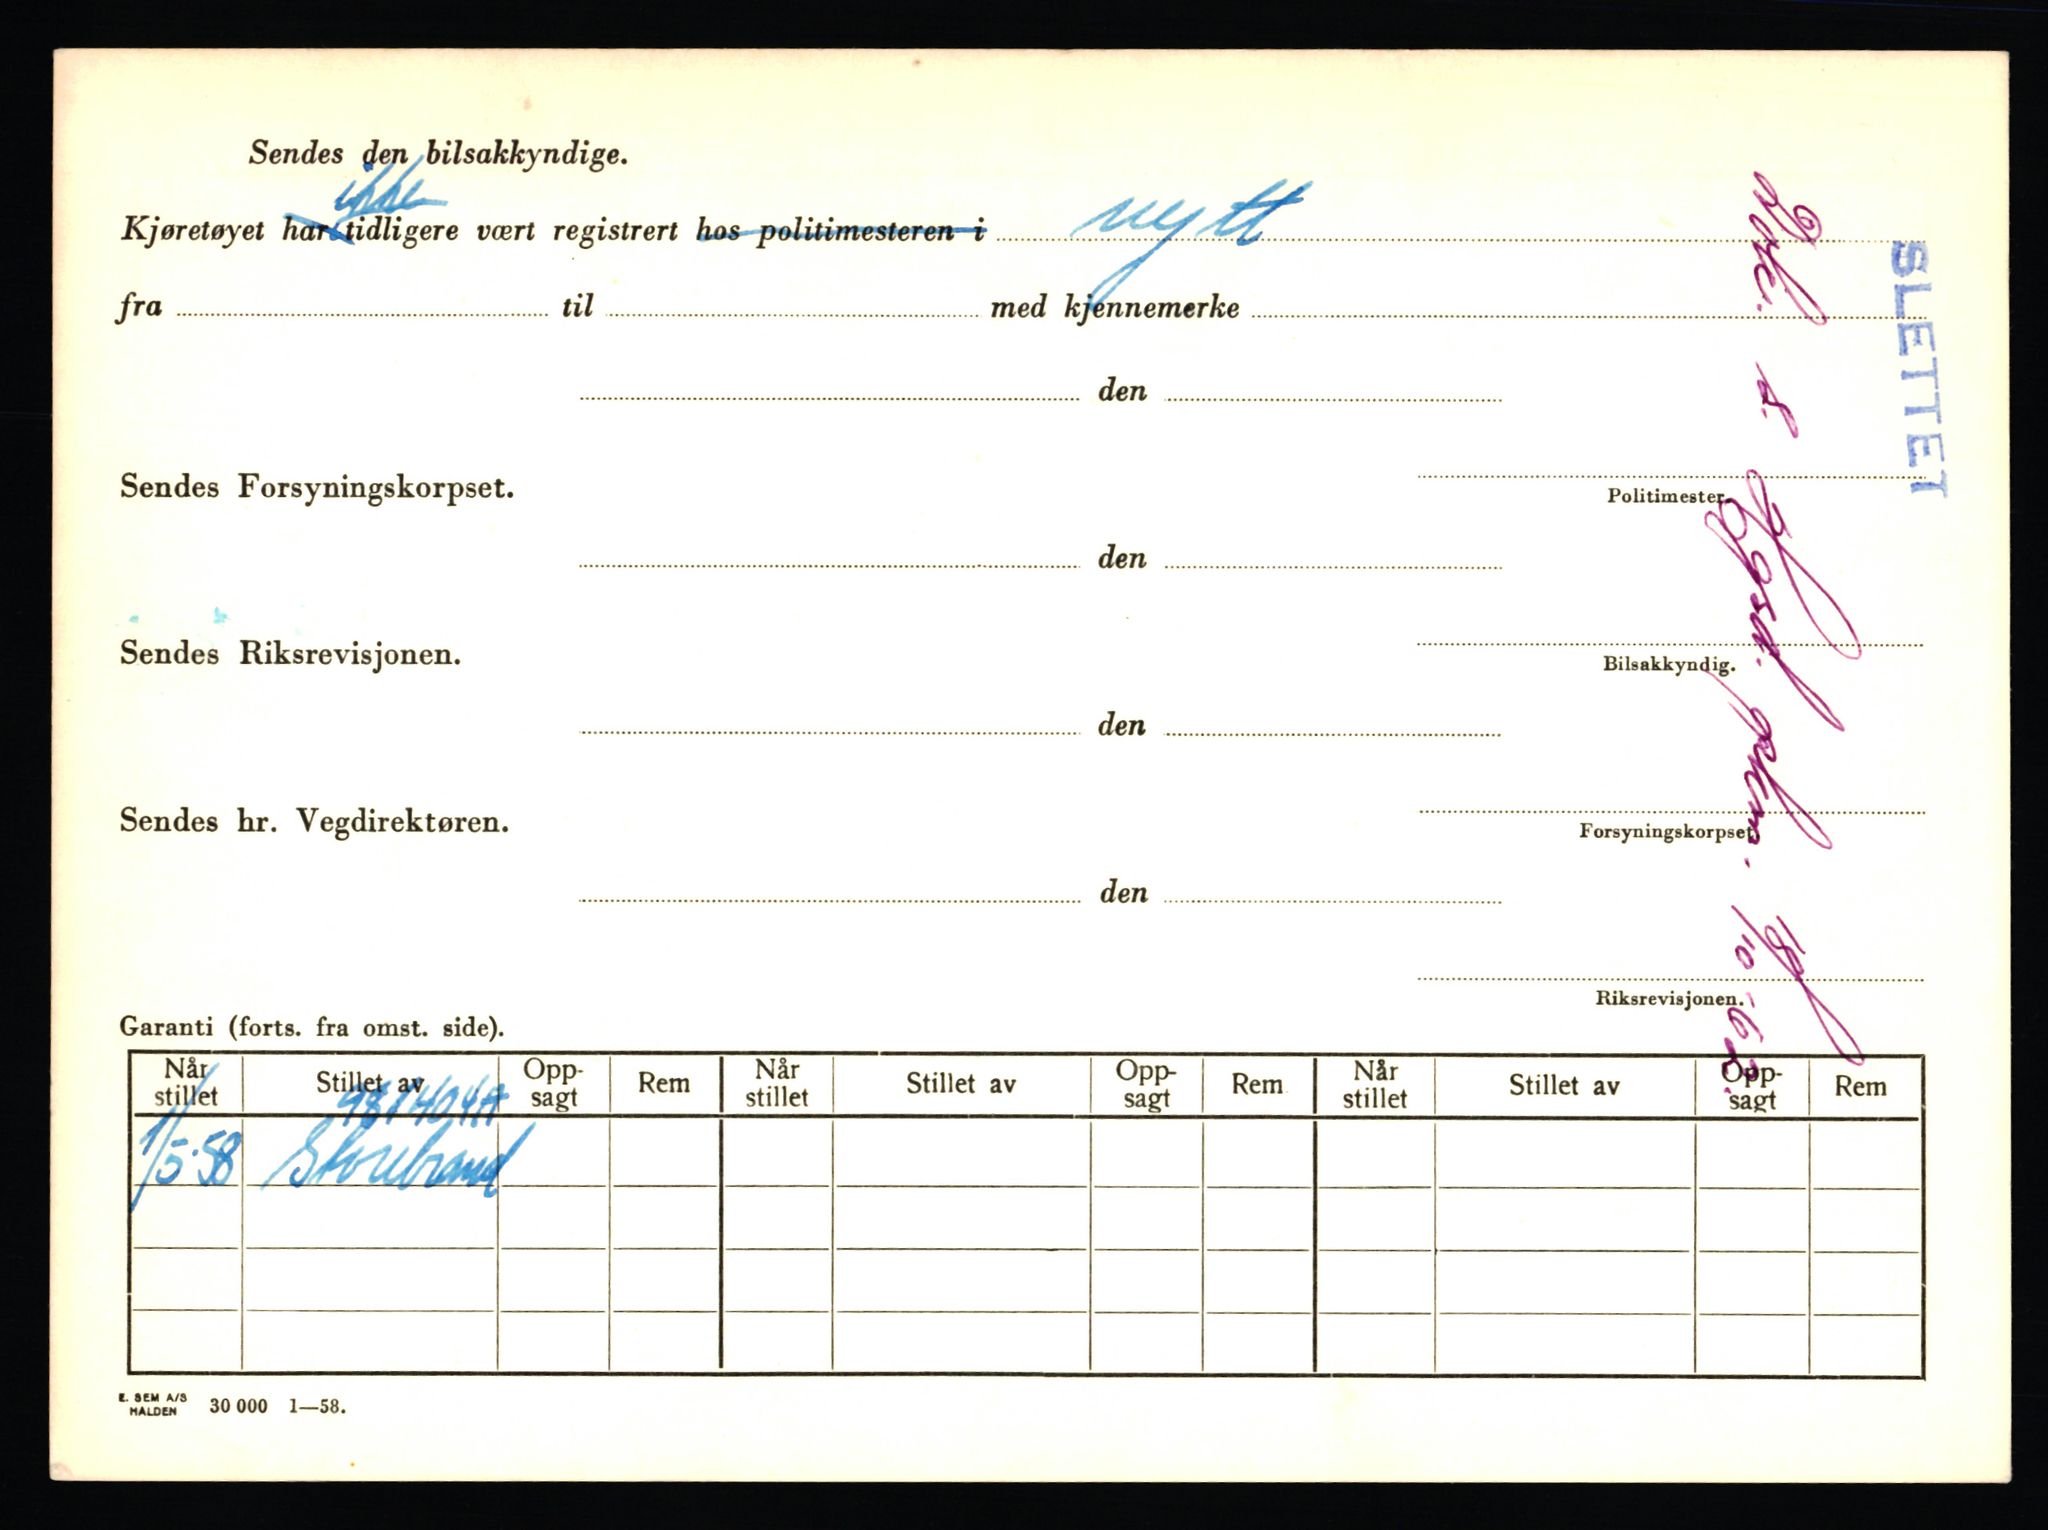 Sendes den bilsakkyndige.
ikke
Kjøretøyet har tidligere vært registrert hos politimesteren i nytt
fra til med kjennemerke
den
Politimester.
Sendes Forsyningskorpset.
den
Bilsakkyndig.
Sendes Riksrevisjonen.
den
Forsyningskorpset
Sendes hr. Vegdirektøren.
den
Riksrevisjonen.
SLETTET
Garanti (forts. fra omst. side).
Når stillet Stillet av Opp-sagt Rem Når stillet Stillet av Opp-sagt Rem Når stillet Stillet av Opp-sagt Rem
1/5-58 Storebrand
E. SEM A/S HALDEN 30 000 1—58.